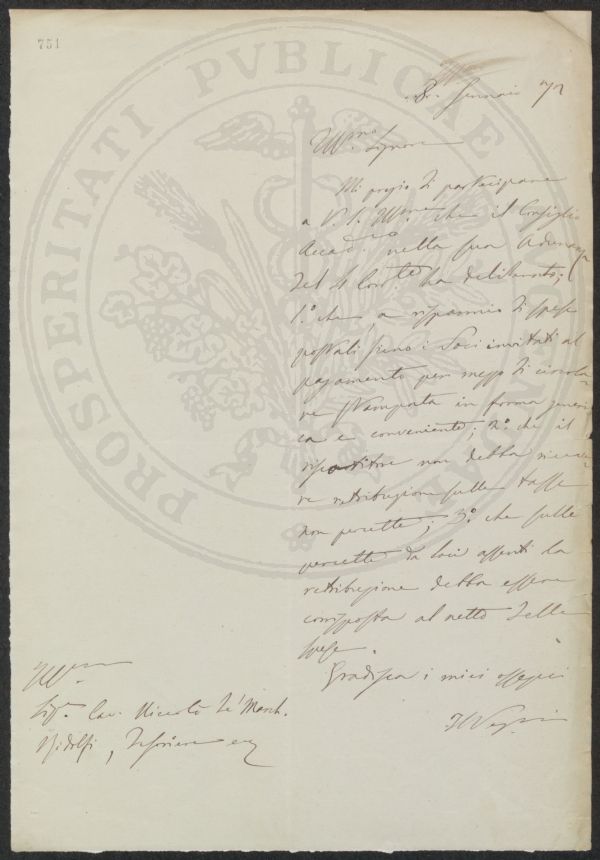 751
PROSPERITATI PVBLICAE
8. Gennaio 72
Ill.mo Signore
Mi pregio di partecipare
a V. S. Ill.ma che il Consiglio
Accad.co nella sua Adunanza
del 4 Corr.te ha deliberato;
1.o che, a risparmio di spese
postali sieno i Soci invitati al
pagamento per mezzo di circola-
re stampata in forma generi-
ca e conveniente; 2.o che il
riscotitore non debba riceve-
re retribuzione sulle tasse
non percette; 3.o che sulle
percette da Soci assenti la
retribuzione debba essere
corrisposta al netto delle
spese.
Gradisca i miei ossequi
Ill.mo
Sig.r Cav. Niccolò de' March.
Ridolfi, Tesoriere